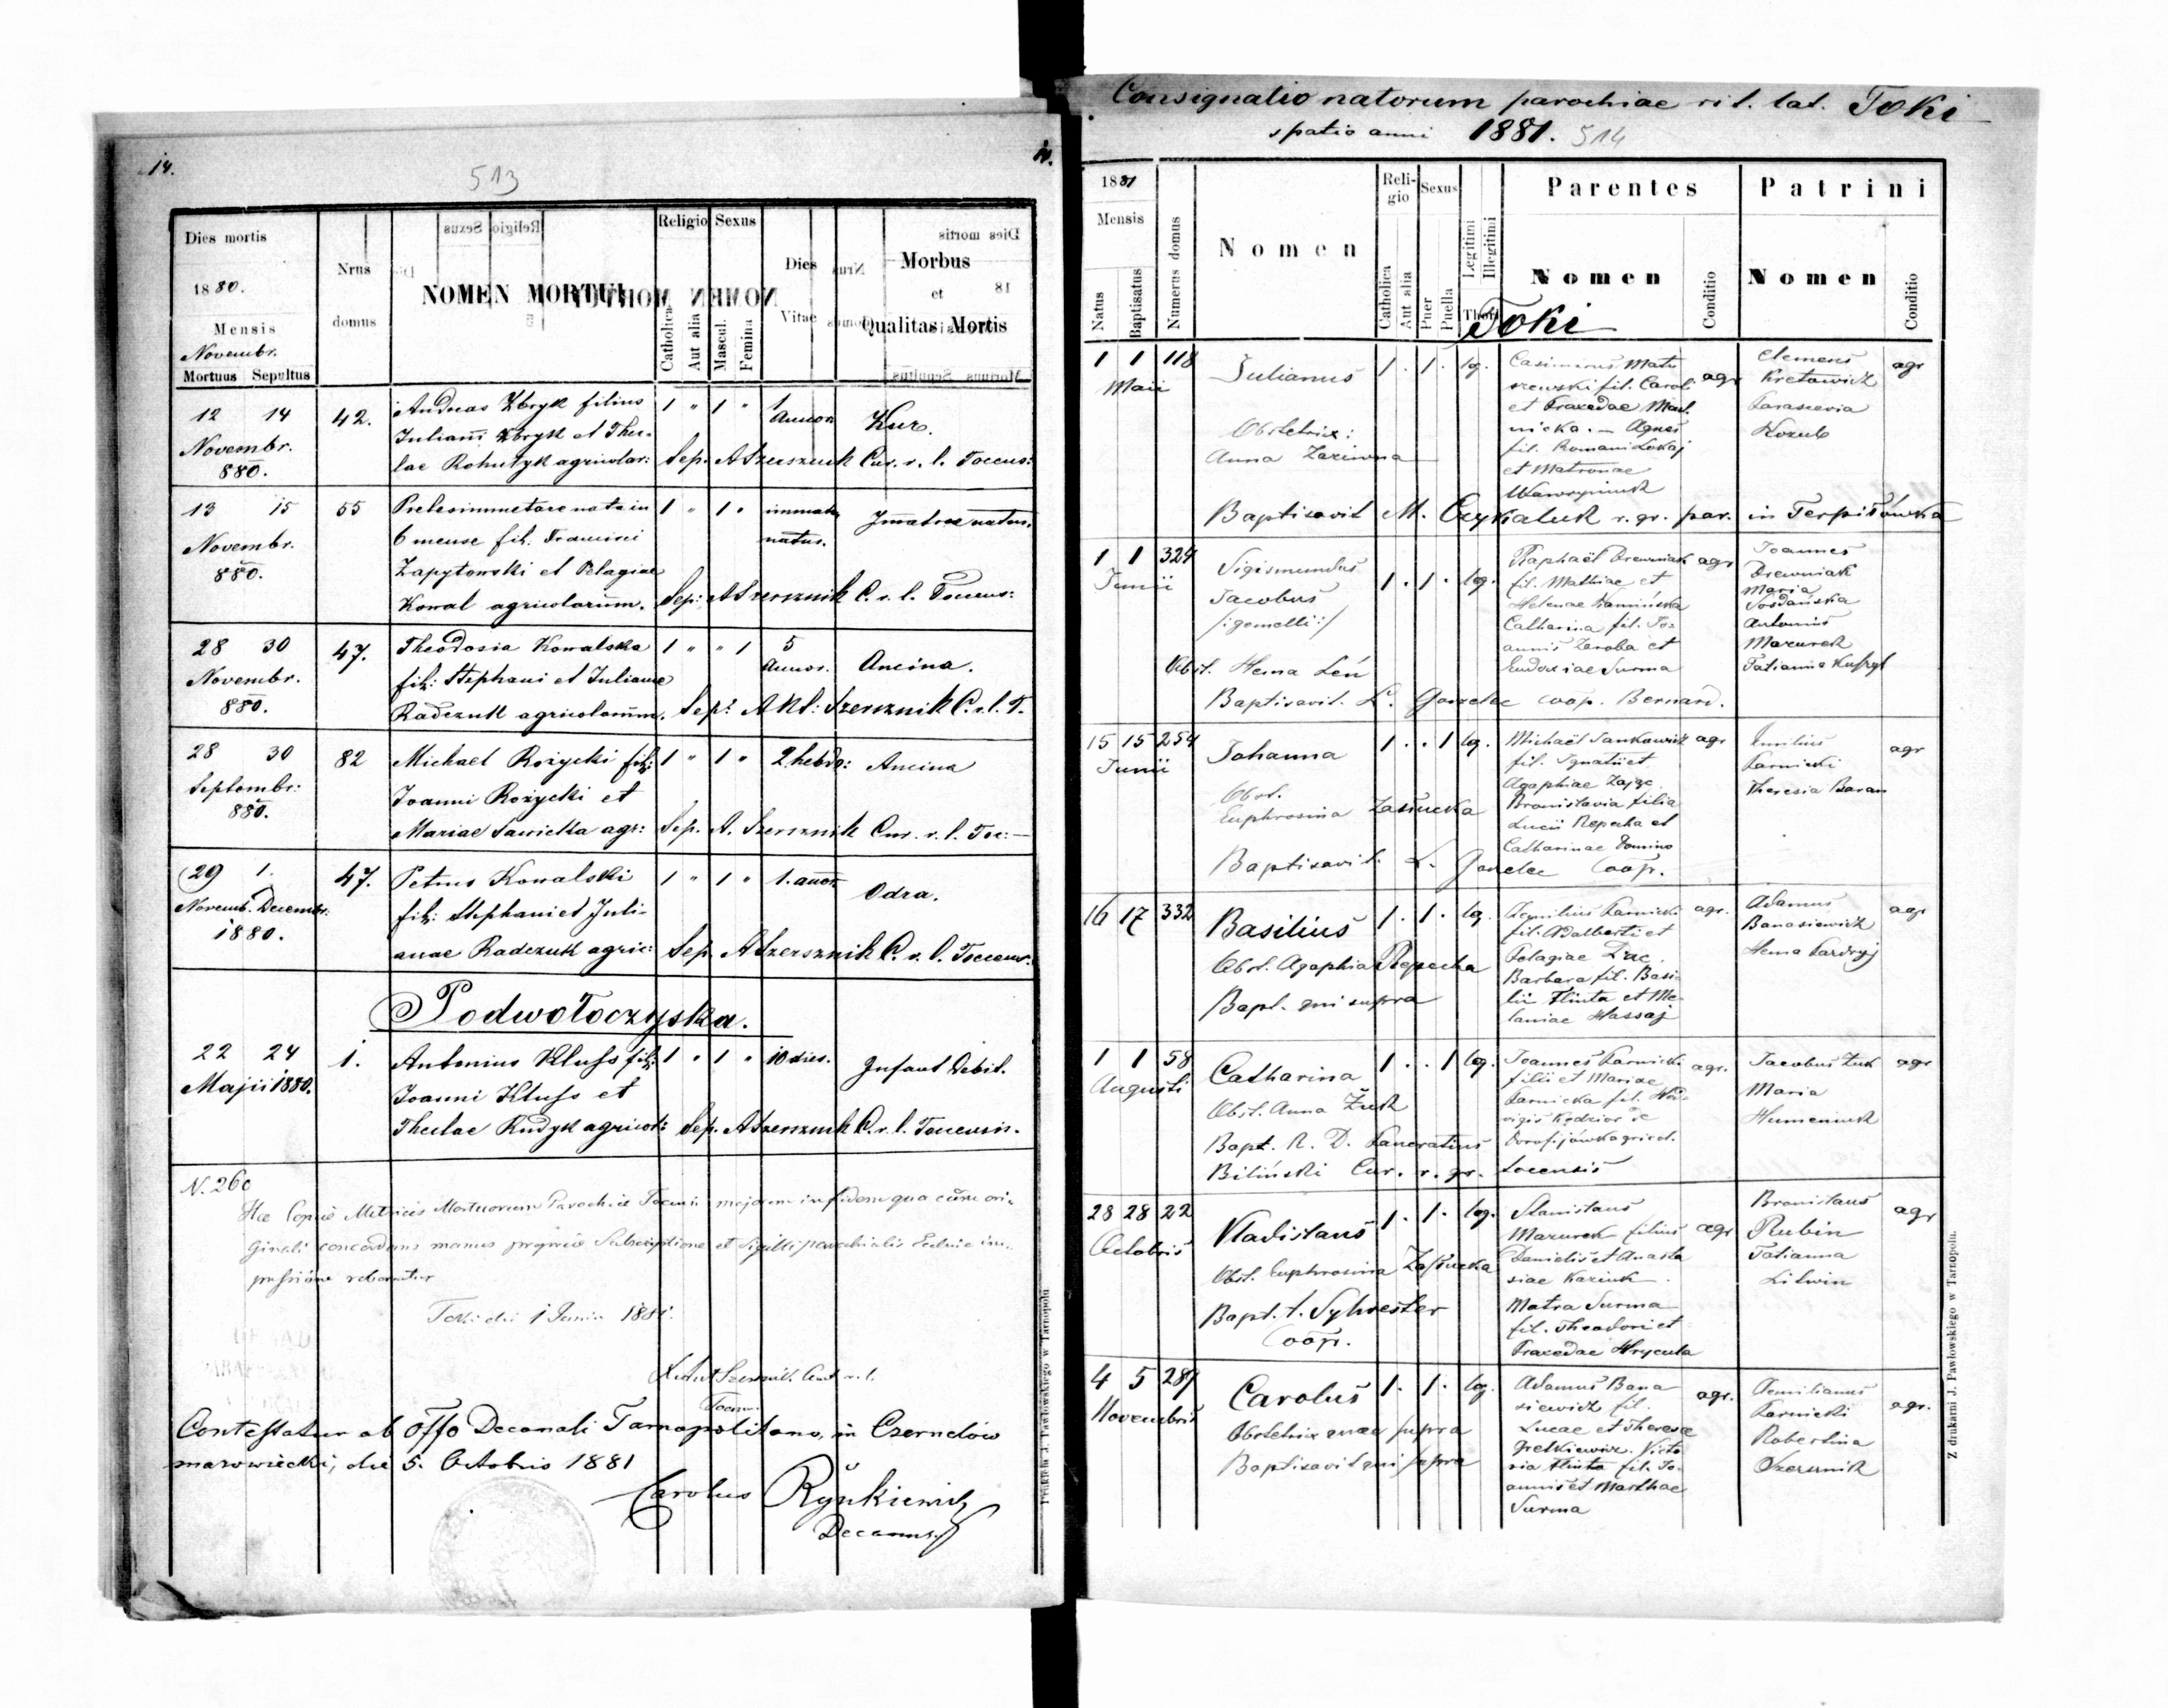 14.
513
Dies mortis
1880.
Mensis
Novembr.
Mortuus Sepultus
Nrus
domus
NOMEN MORTUI
Religio
Catholica
Aut alia
Sexus
Mascul.
Femina
Dies
Vitae
Morbus
et
Qualitas Mortis
12 14 42. Andreas Zbryk filius 1 " 1 " 1 Annor. Kur.
Novembr. Juliani Zbryk et Thec-
880. lae Rohutyk agricolar: Sep. A Szersznik Cur. r. l. Toccens:
13 15 55 Proles immature nata in 1 " 1 " immat. Imature natus.
Novembr. 6 mense fil. Francisci natus.
880. Zapytowski et Pelagiae
Kowal agricolarum. Sep: A Szersznik C. r. l. Toccens:
28 30 47. Theodosia Kowalska 1 " " 1 5 Annor. Ancina.
Novembr. fil: Stephani et Julianae
880. Radczuk agricolarum. Sep: A Kl: Szersznik C. r. l. T.
28 30 82 Michael Rożycki fil: 1 " 1 " 2 hebdo: Ancina
Septembr: Joanni Rożycki et
880. Mariae Sawicka agr: Sep. A. Szersznik Cur. r. l. Toc:
29 1. 47. Petrus Kowalski 1 " 1 " 1. anor. Odra.
Novemb. Decembr. fil: Stephani et Juli-
1880. anae Radczuk agric: Sep. A Szersznik C. r. l. Toccens.
Podwołoczyska.
22 24 1. Antonius Kluss fil: 1 " 1 " 10 dies. Infant Debil.
Majii 1880. Joanni Kluss et
Theclae Rudyk agricol: Sep. A Szersznik C. r. l. Toccensis.
N. 260
Hae Copiae Metrices Mortuorum Parochiae Toccensis majorem in fidem qua cum ori-
ginali concordans manus propriae Subscriptione et Sigilli parochialis Ecclesiae im-
pressione roboratur
Toki die 1 Junii 1881.
Szersznik Cur r. l.
Toccen.
Contestatur ab Offo Decanali Tarnopolitano, in Czernelów
mazowiecki, die 5. Octobris 1881
Carolus Rynkiewicz
Decanus.
Drukiem J. Pawłowskiego w Tarnopolu
Consignatio natorum parochiae rit. lat. Toki
spatio anni 1881. 514
1881
Mensis
Natus
Baptisatus
Numerus domus
Nomen
Religio
Catholica
Aut alia
Sexus
Puer
Puella
Legitimi
Illegitimi
Thori
Parentes
Nomen
Conditio
Patrini
Nomen
Conditio
Toki
1 1 118 Julianus 1. 1. leg. Casimirus Matu agr Clemens agr
Maii szewski fil. Caroli Kretowicz
et Praxedae Mar. Parascevia
nicka. — Agnes Kozub
Obstetrix: fil. Romani Lokaj
Anna Zaziwna et Matronae
Wawryniuk
Baptisavit M. Czykaluk r. gr. par. in Terpiłówka
1 1 324 Sigismundus 1. 1. leg. Raphaël Drewniak agr Joannes
Junii Jacobus fil. Mathiae et Drewniak
/:gemelli:/ Helenae Kamińska Maria
Catharina fil. Jo- Antonius
annis Zaroba et Mazurek
Obst. Hema Leń Eudoxiae Surma Tatianna
Baptisavit. L. Gawelec coop. Bernard.
15 15 254 Johanna 1. . 1 leg. Michaël Jankowicz agr agr
Junii fil. Ignatii et Karnicki
Obst. Agaphiae Zając Theresia Baran
Euphrosina Zastucka Bronislavia filia
Lucii Repecka et
Catharinae Domino
Baptisavit L. Gawelec Coop.
16 17 332 Basilius 1. 1. leg. Aemilius Karnicki agr. Adamus agr
fil. Adalberti et Banasiewicz
Obst. Agaphia Repecka Pelagiae Hema
Barbara fil. Basi-
Bapt. qui supra lii Flinta et Me-
laniae Hassaj
1 1 58 Catharina 1. . 1 leg. Joannes Karnicki agr. Jacobus Żuk agr
Augusti filii et Mariae Maria
Obst. Anna Żuk Karnicka fil. Humeniuk
Bapt. R. D. Pancratius Dorofijówka agricol.
Biliński Cur. r. gr. Tocensis
28 28 22 Vladislaus 1. 1. leg. Stanislaus agr Bronislaus agr
Octobris Mazurek filius Rubin
Obst. Euphrosina Zastucka Danielis et Anasta Tatianna
siae Kaziuk. Litwin
Bapt. t. Sylvester Matra Surma
Coop. fil. Theodori et
Praxedae Hrycula
4 5 289 Carolus 1. 1. leg. Adamus Bana agr. Aemilianus agr.
Novembris siewicz fil. Karnicki
Obstetrix quae supra Lucae et Theresae Robertina
Baptisavit qui supra Petkiewicz. Victo Szersznik
ria Flinta fil. Jo-
annis et Marthae
Surma
Z drukarni J. Pawłowskiego w Tarnopolu.